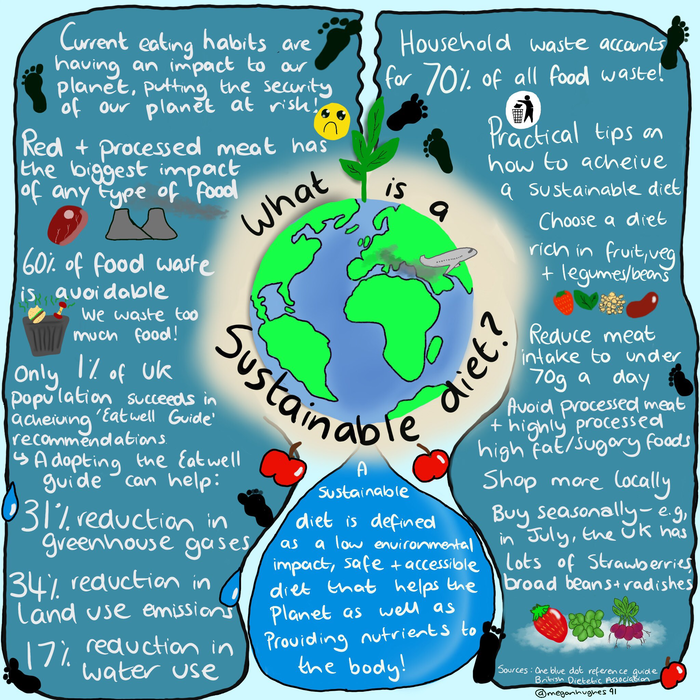 Current eating habits are
having an impact to our
planet, putting the security
of our planet at risk!
Red + processed meat has
the biggest impact
of any type of food
60% of food waste
is avoidable
We waste too
much food!
Only 1% of UK
population succeeds in
acheiving 'Eatwell Guide'
recommendations
↳ Adopting the Eatwell
guide can help:
31% reduction in
greenhouse gases
34% reduction in
land use emissions
17% reduction in
water use
What is a
Sustainable diet?
A
sustainable
diet is defined
as a low environmental
impact, safe + accessible
diet that helps the
Planet as well as
Providing nutrients to
the body!
Household waste accounts
for 70% of all food waste!
Practical tips on
how to acheive
a sustainable diet
Choose a diet
rich in fruit, veg
+ legumes/beans
Reduce meat
intake to under
70g a day
Avoid processed meat
+ highly processed
high fat/sugary foods
Shop more locally
Buy seasonally - e.g,
in July, the UK has
Lots of Strawberries,
broad beans + radishes
Sources: One blue dot reference guide
British Dietetic Association
@meganhughes91